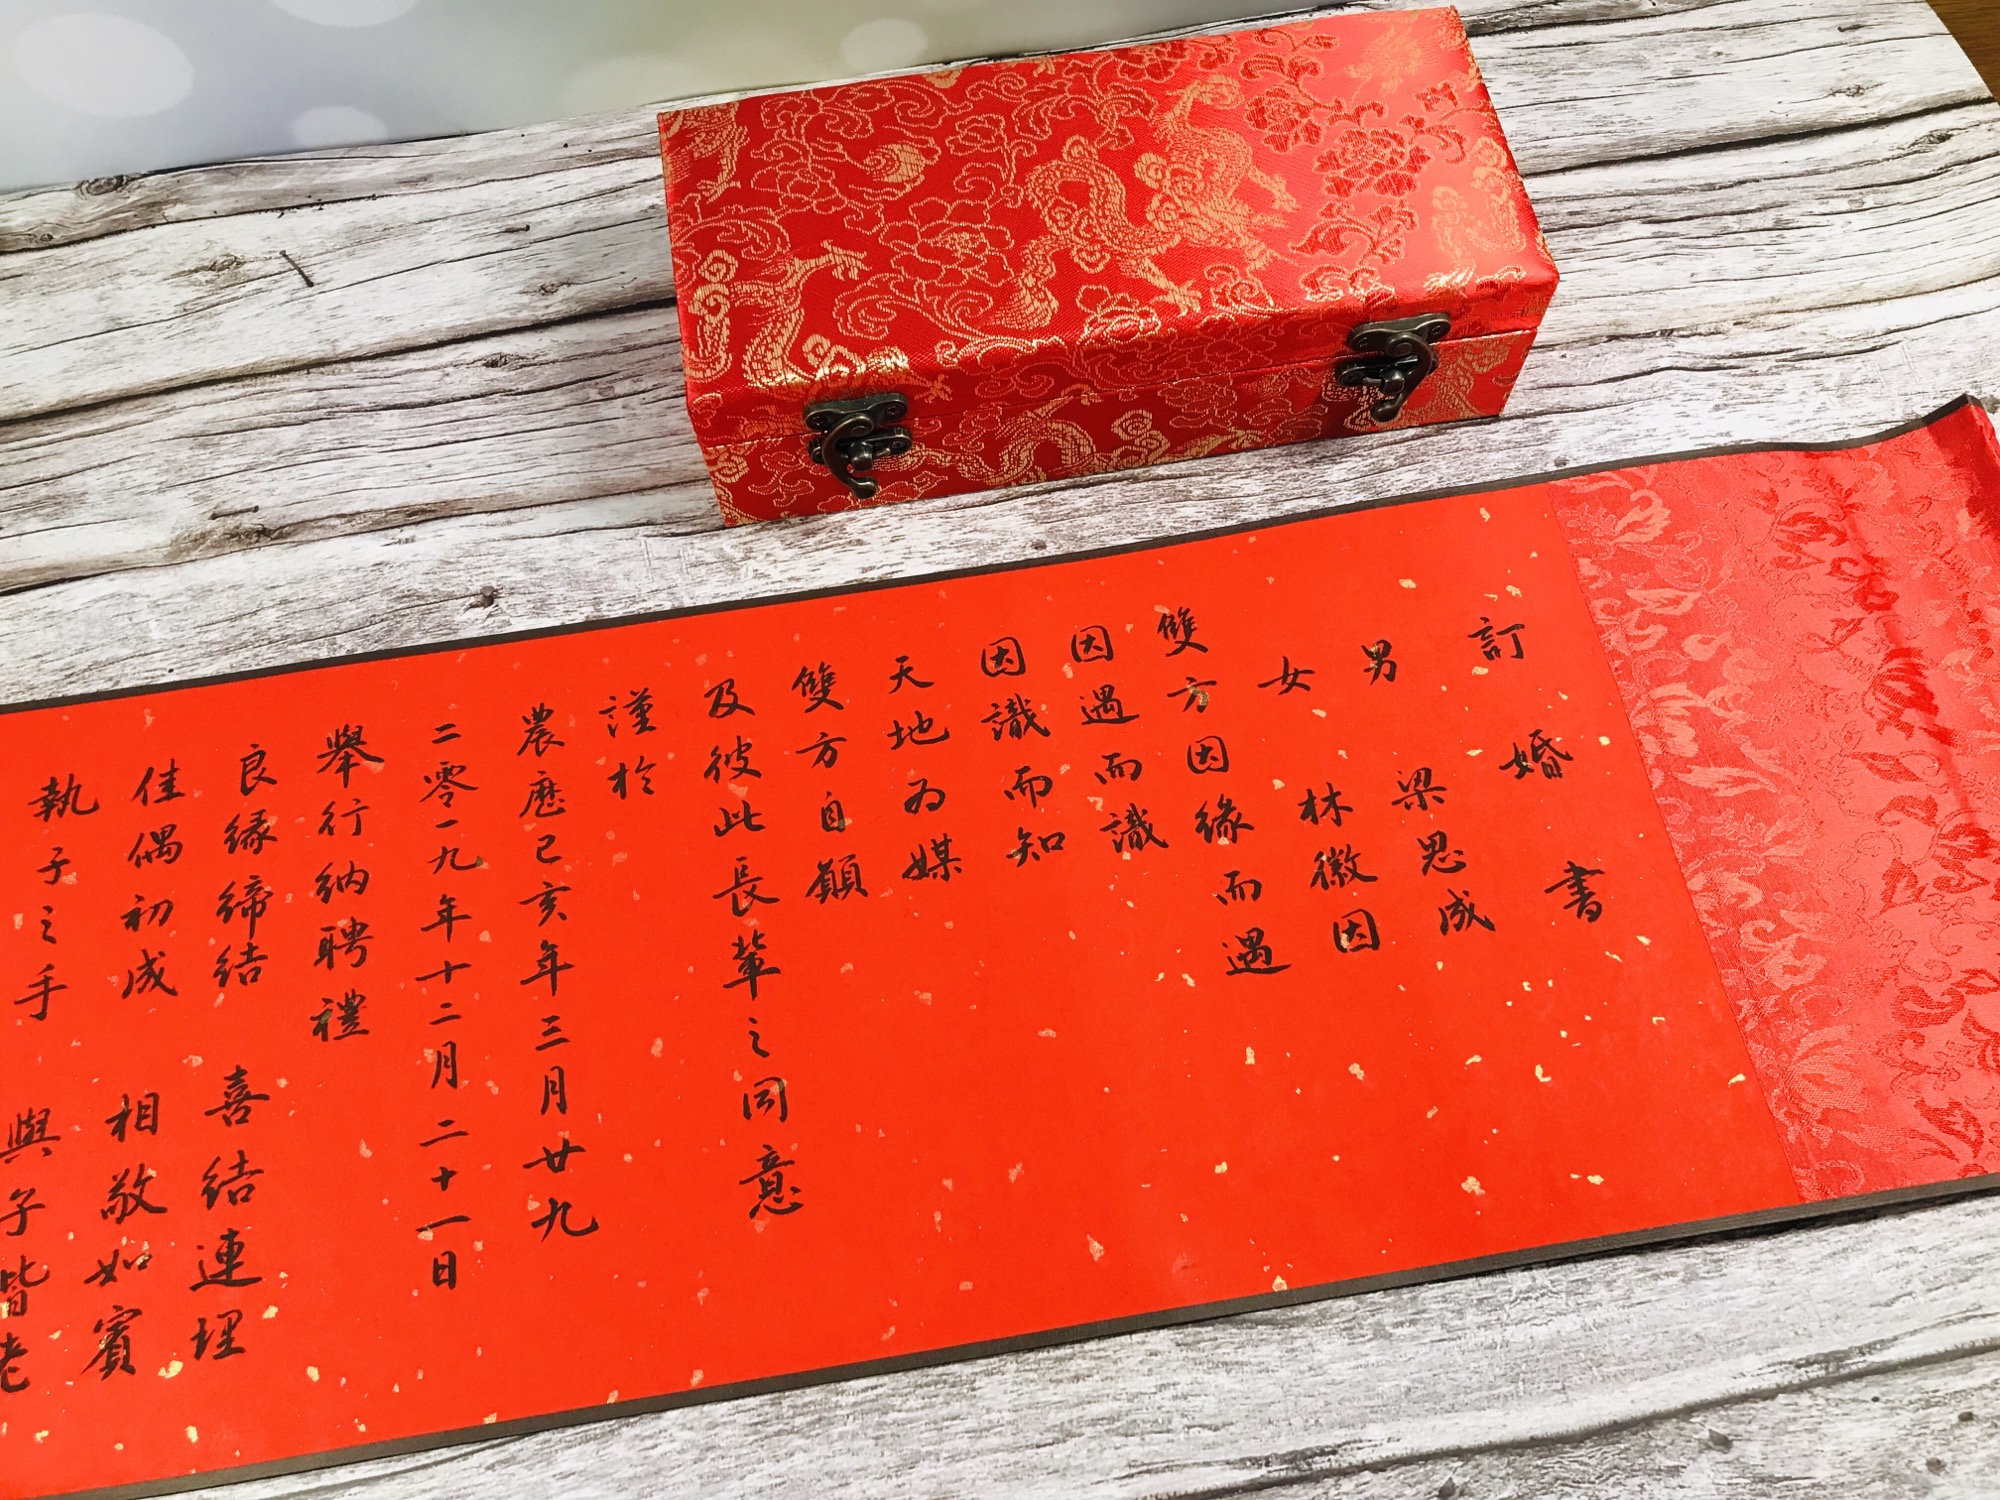 訂婚書
男 梁思成
女 林徽因
雙方因緣而遇
因遇而識
因識而知
天地為媒
雙方自願
及彼此長輩之同意
謹於
農曆己亥年三月廿九
二零一九年十二月二十一日
舉行納聘禮
良緣締結 喜結連理
佳偶初成 相敬如賓
執子之手 與子皆老